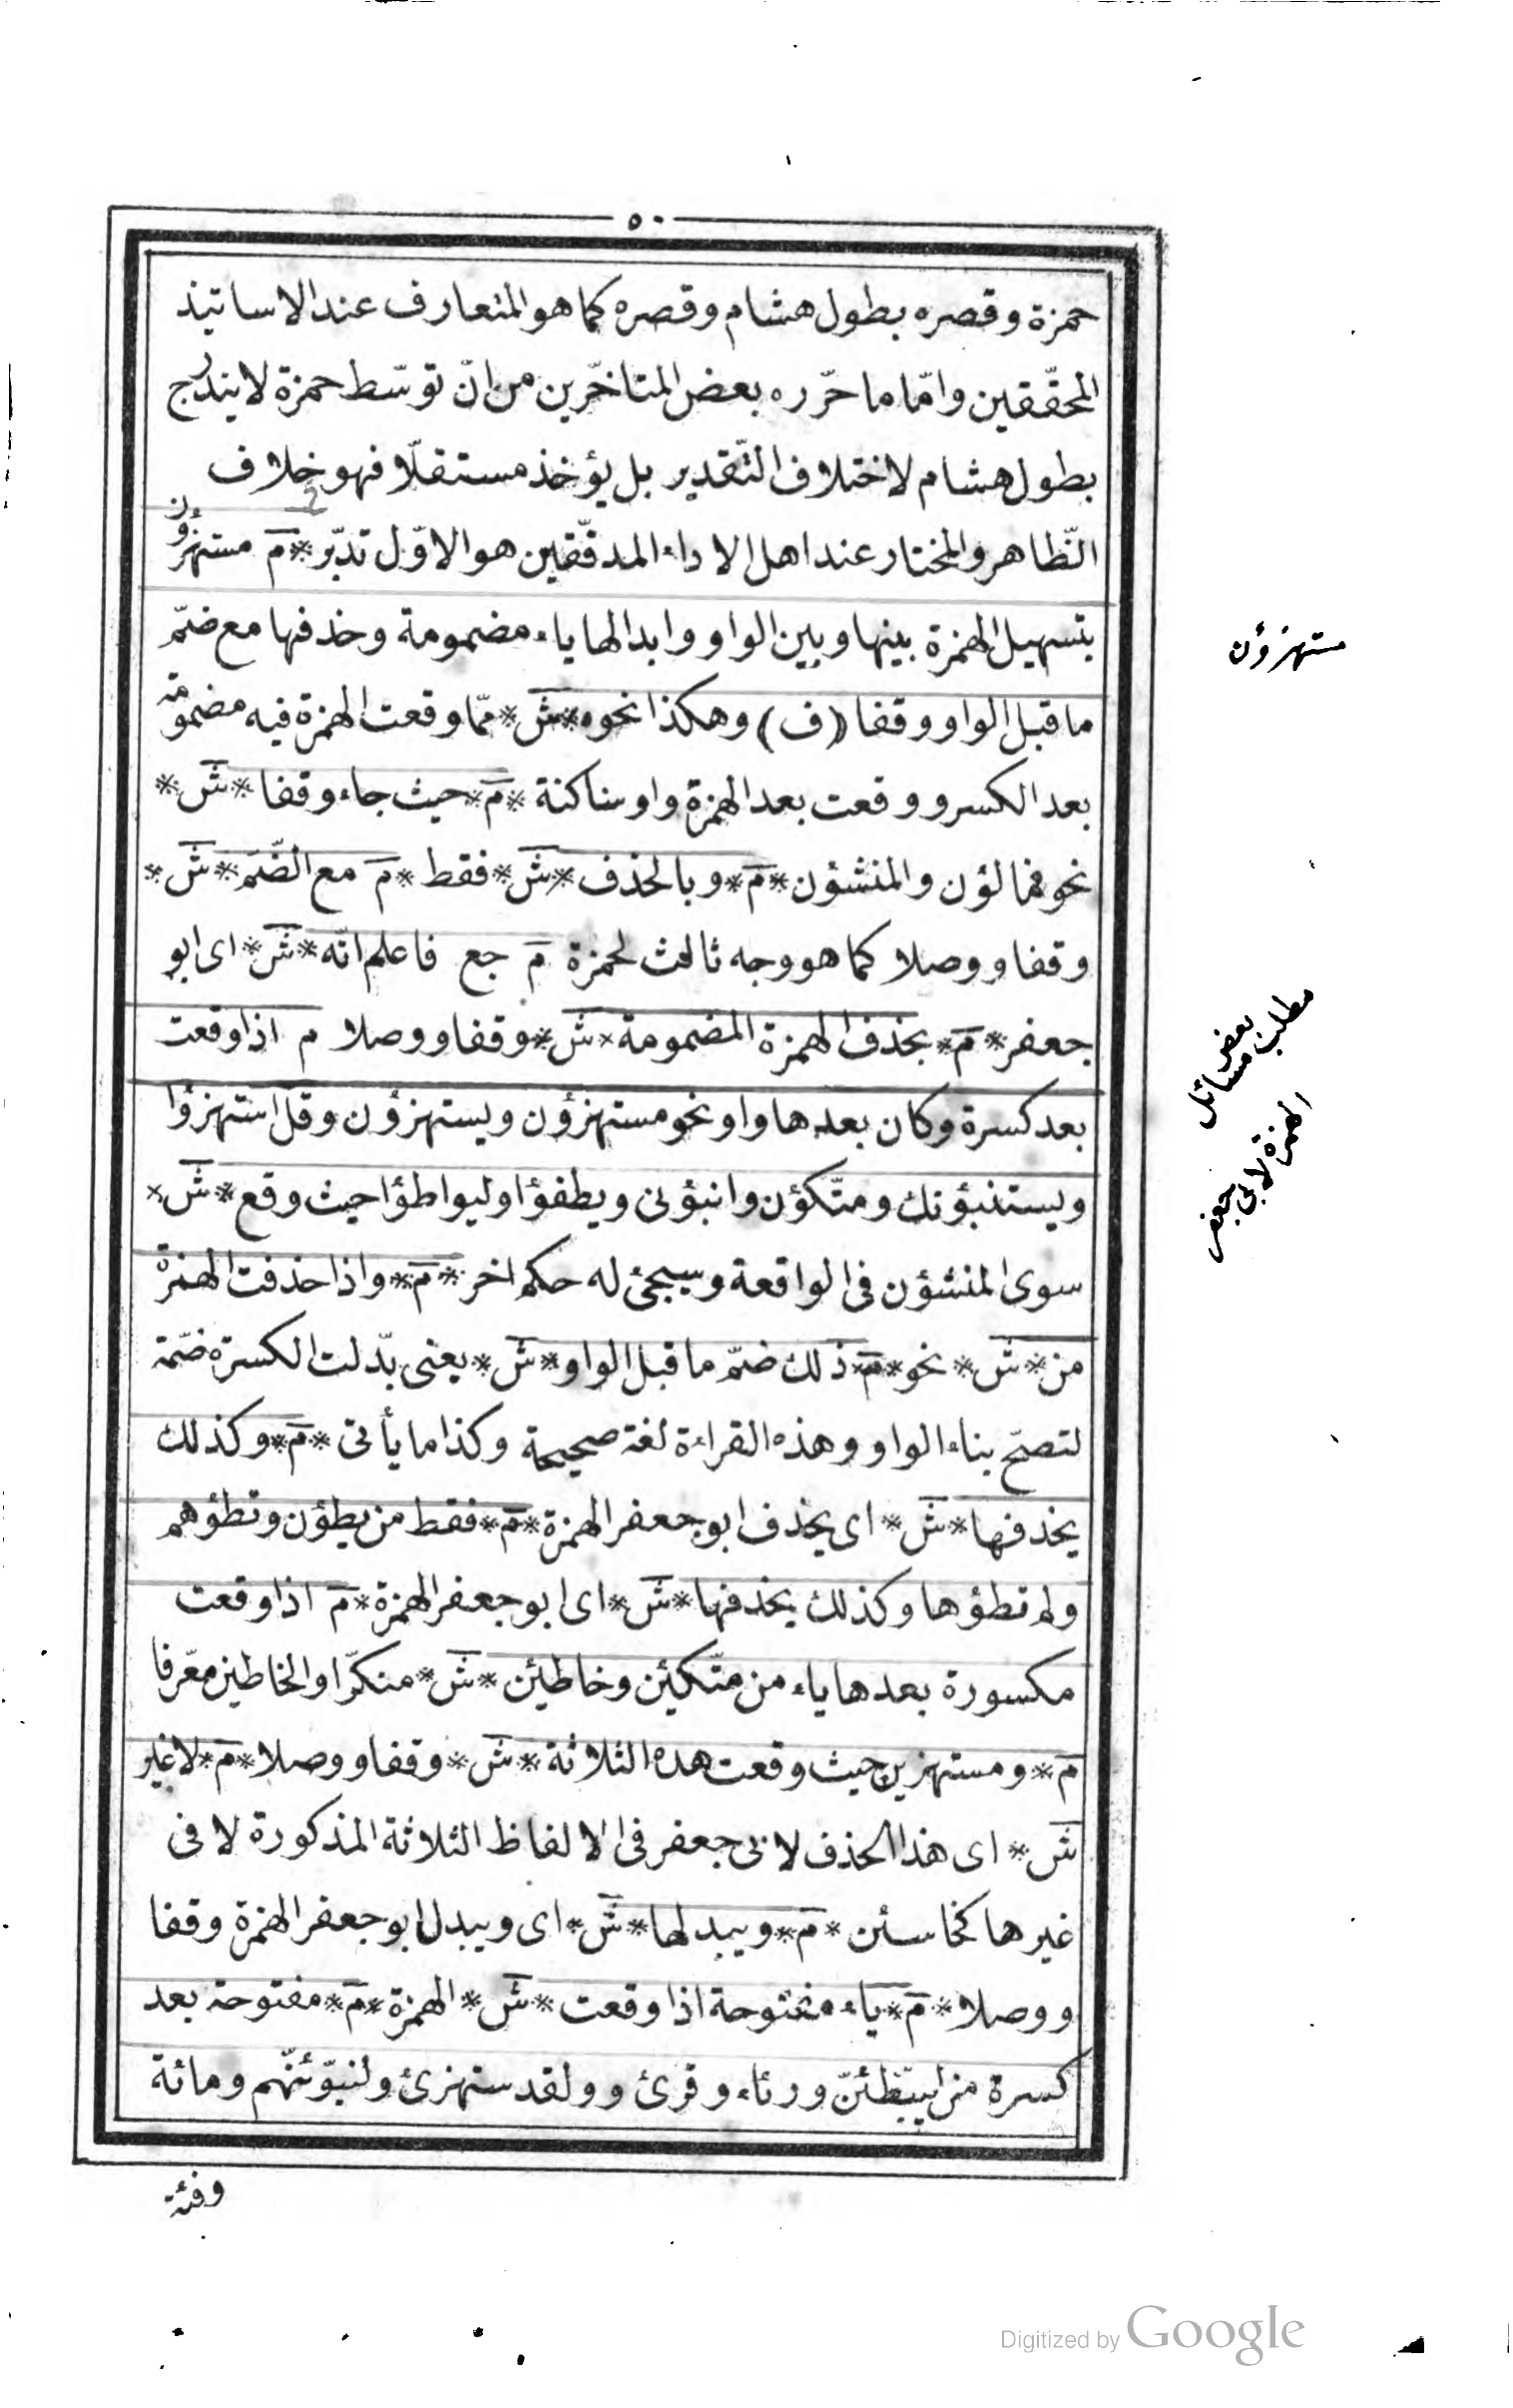 ٥٠
حمزة وقصره بطول هشام وقصره كما هو المتعارف عند الاساتيذ
المحقّقين وامّا ما حرّره بعض المتاخّرين من انّ توسّط حمزة لا يندرج
بطول هشام لاختلاف التّقدير بل يؤخذ مستقلّا فهو خلاف
الظّاهر والمختار عند اهل الاداء المدقّقين هو الاوّل تدبّر * م مستهزؤن
بتسهيل الهمزة بينها وبين الواو وابدالها ياء مضمومة وحذفها مع ضمّ
ما قبل الواو وقفا (ف) وهكذا نحوه * ش * ممّا وقعت الهمزة فيه مضمومة
بعد الكسر ووقعت بعد الهمزة واو ساكنة * م * حيث جاء وقفا * ش *
نحو فمالؤن والمنشؤن * م * وبالحذف * ش * فقط * م مع الضّمّ * ش *
وقفا ووصلا كما هو وجه ثالث لحمزة م جع فاعلم انّه * ش * اى ابو
جعفر * م * يحذف الهمزة المضمومة * ش * وقفا ووصلا م اذا وقعت
بعد كسرة وكان بعدها واو نحو مستهزؤن ويستهزؤن وقل استهزؤا
ويستنبؤنك ومتّكؤن وانبؤنى ويطفؤا وليواطؤا حيث وقع * ش *
سوى المنشؤن فى الواقعة وسيجئ له حكم اخر * م * واذا حذفت الهمزة
من * ش * نحو * م * ذلك ضمّ ما قبل الواو * ش * يعنى بدّلت الكسرة ضمّة
لتصحّ بناء الواو وهذه القراءة لغة صحيحة وكذا ما يأتى * م * وكذلك
يحذفها * ش * اى يحذف ابو جعفر الهمزة * م * فقط من يطؤن وتطؤهم
ولم تطؤها وكذلك يحذفها * ش * اى ابو جعفر الهمزة * م اذا وقعت
مكسورة بعدها ياء من متّكئن وخاطئن * ش * منكرّا والخاطين معّرفا
م * ومستهزين حيث وقعت هذه الثلاثة * ش * وقفا ووصلا * م * لا غير
ش * اى هذا الحذف لابى جعفر فى الالفاظ الثلاثة المذكورة لا فى
غيرها كخاسئن * م * ويبدلها * ش * اى ويبدل ابو جعفر الهمزة وقفا
ووصلا * م * ياء مفتوحة اذا وقعت * ش * الهمزة * م * مفتوحة بعد
كسرة من ليبّطئنّ ورئاء وقرئ وولقد ستهزئ ولنبوّئنّهم ومائة
وفئة
مستهزؤن
مطلب بعض مسائل
الهمزة لابى جعفر
Digitized by Google